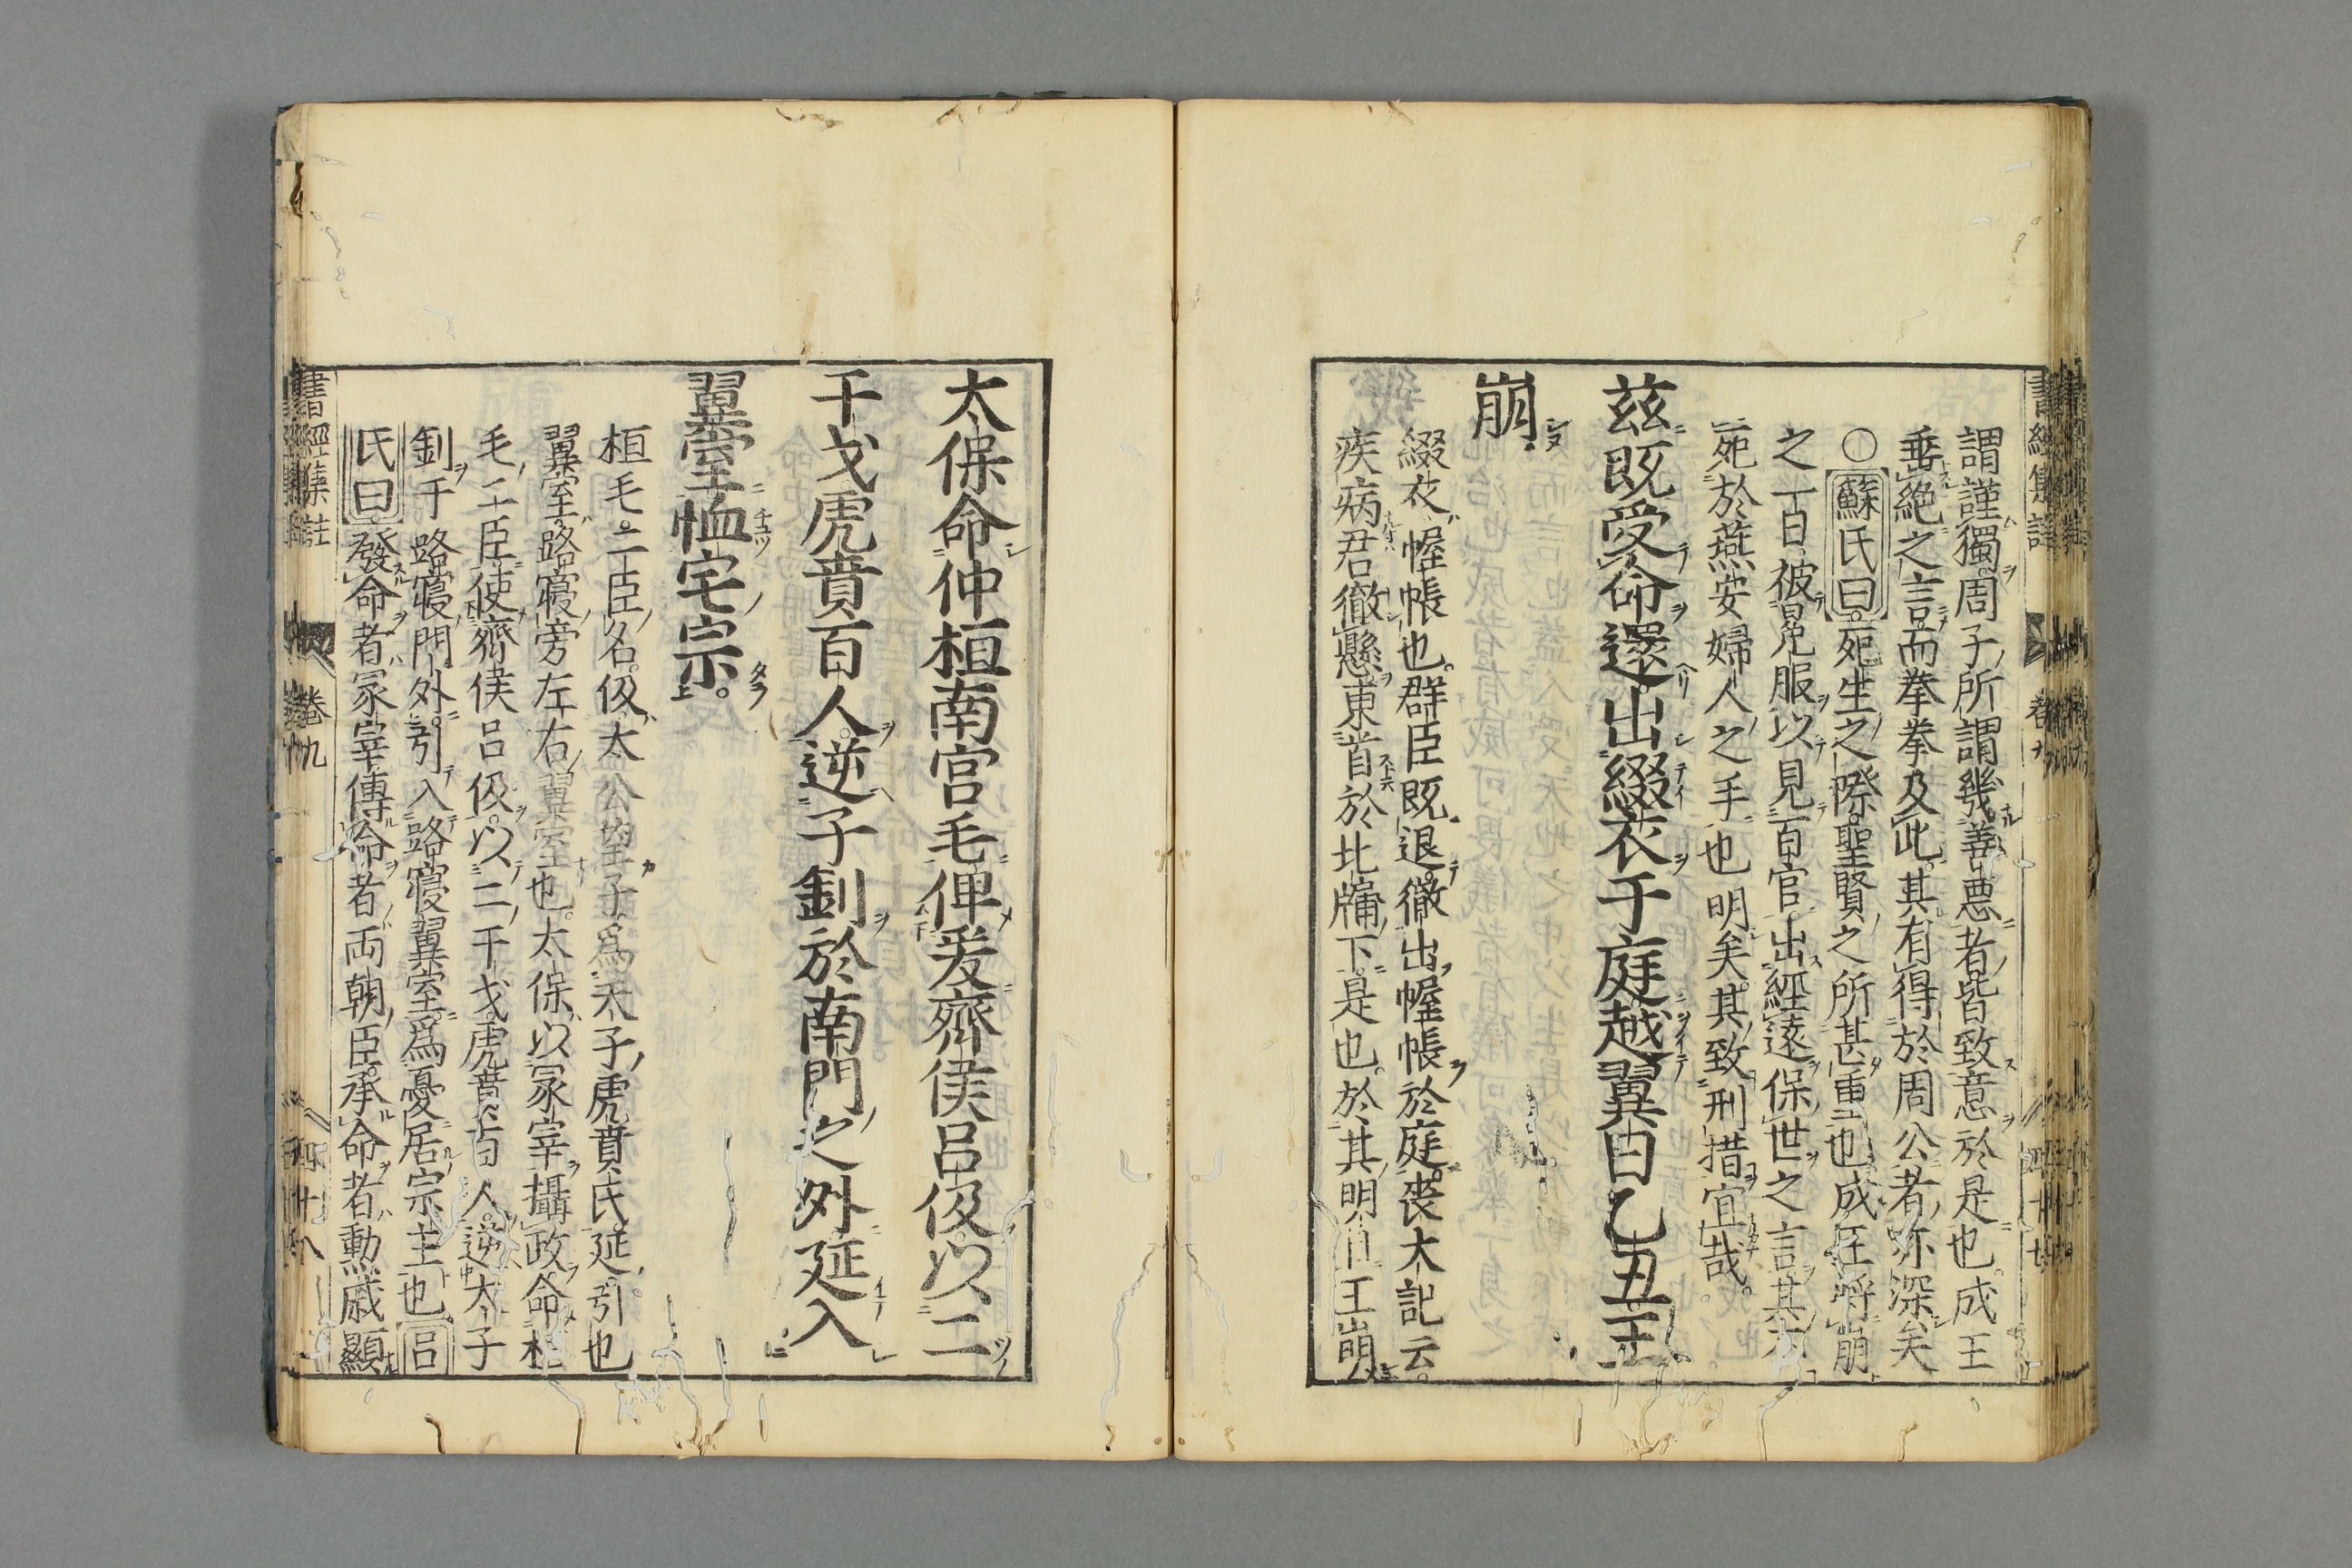 謂謹獨周子所謂幾善惡者皆致意於是也成王
垂絶之言而拳拳及此其有得於周公者亦深矣
○蘇氏曰死生之際聖賢之所甚重也成王將崩
之一日被冕服以見百官出經遠保世之言其不
死於燕安婦人之手也明矣其致刑措宜哉
茲既受命還出綴衣于庭越翼日乙丑王
崩
綴衣幄帳也群臣既退徹出幄帳於庭喪大記云
疾病君徹懸東首於北牖下是也於其明日王崩
太保命仲桓南宮毛俾爰齊侯呂伋以二
干戈虎賁百人逆子釗於南門之外延入
翼室恤宅宗
桓毛二臣名伋太公望子爲天子虎賁氏延引也
翼室路寢旁左右翼室也太保以冢宰攝政命桓
毛二臣使齊侯呂伋以二干戈虎賁百人逆太子
釗于路寢門外引入路寢翼室爲憂居宗主也呂
氏曰發命者冢宰傳命者両朝臣承命者勳戚顯
書經集註 卷九 四十八